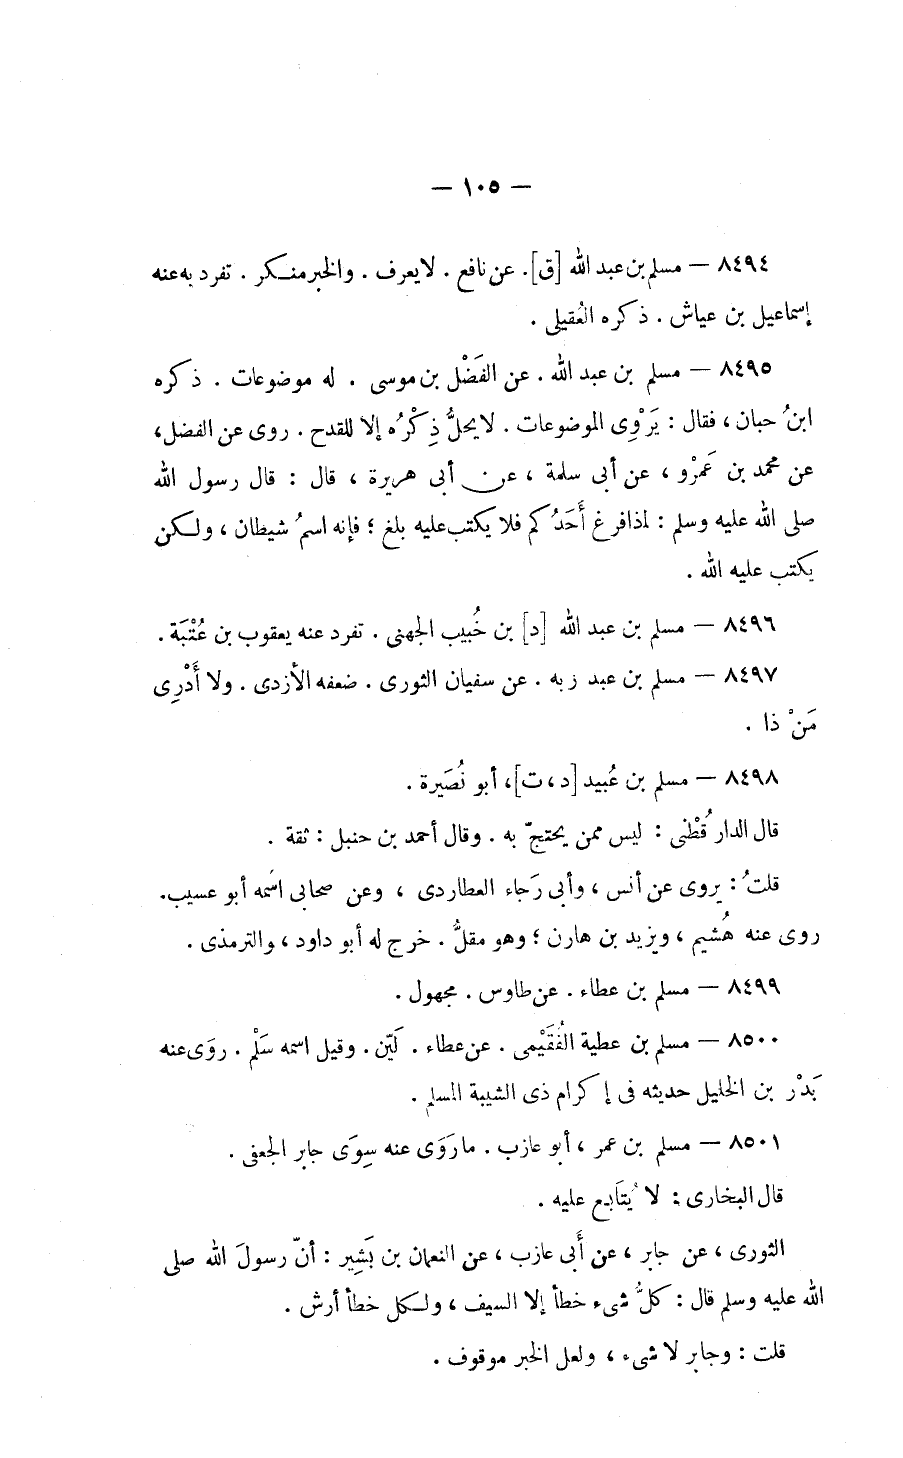 — ١٠٥ —
٨٤٩٤ — مسلم بن عبد الله [ق]. عن نافع . لا يعرف . والخبر منكر . تفرد به عنه
إسماعيل بن عياش . ذكره العُقيلى .
٨٤٩٥ — مسلم بن عبد الله . عن الفَضْل بن موسى . له موضوعات . ذكره
ابنُ حبان ، فقال : يَرْوِى الموضوعات . لا يحلُّ ذِكْرُه إلا للقدح . روى عن الفضل ،
عن محمد بن عَمْرو ، عن أبى سلمة ، عن أبى هريرة ، قال : قال رسول الله
صلى الله عليه وسلم : إذا فرغ أَحَدُكم فلا يكتب عليه بلغ ؛ فإنه اسمُ شيطان ، ولكن
يكتب عليه الله .
٨٤٩٦ — مسلم بن عبد الله [د] بن خُبيب الجهنى . تفرد عنه يعقوب بن عُتْبَة .
٨٤٩٧ — مسلم بن عبد ربه . عن سفيان الثورى . ضعفه الأزدى . ولا أَدْرِى
مَنْ ذا .
٨٤٩٨ — مسلم بن عُبيد [د ، ت]، أبو نُصَيرة .
قال الدارقُطْنى : ليس ممن يحتجّ به . وقال أحمد بن حنبل : ثقة .
قلتُ : يروى عن أنس ، وأبى رَجاء العطاردى ، وعن صحابى اسُمه أبو عسيب.
روى عنه هُشيم ، ويزيد بن هارن ؛ وهو مقلُّ . خرج له أبو داود ، والترمذى .
٨٤٩٩ — مسلم بن عطاء . عن طاوس . مجهول .
٨٥٠٠ — مسلم بن عطية الفُقَيْمى . عن عطاء . لَيّن . وقيل اسمه سَلْم . روَى عنه
بَدْر بن الخليل حديثه فى إكرام ذى الشيبة المسلم .
٨٥٠١ — مسلم بن عمر ، أبو عازب . ما رَوَى عنه سِوَى جابر الجعفى .
قال البخارى : لا يُتَابع عليه .
الثورى ، عن جابر ، عن أَبى عازب ، عن النعمان بن بَشِير : أنّ رسولَ الله صلى
الله عليه وسلم قال : كلُّ شىء خطأ إلا السيف ، ولكل خطأ أرش .
قلت : وجابر لا شىء ، ولعل الخبر موقوف .